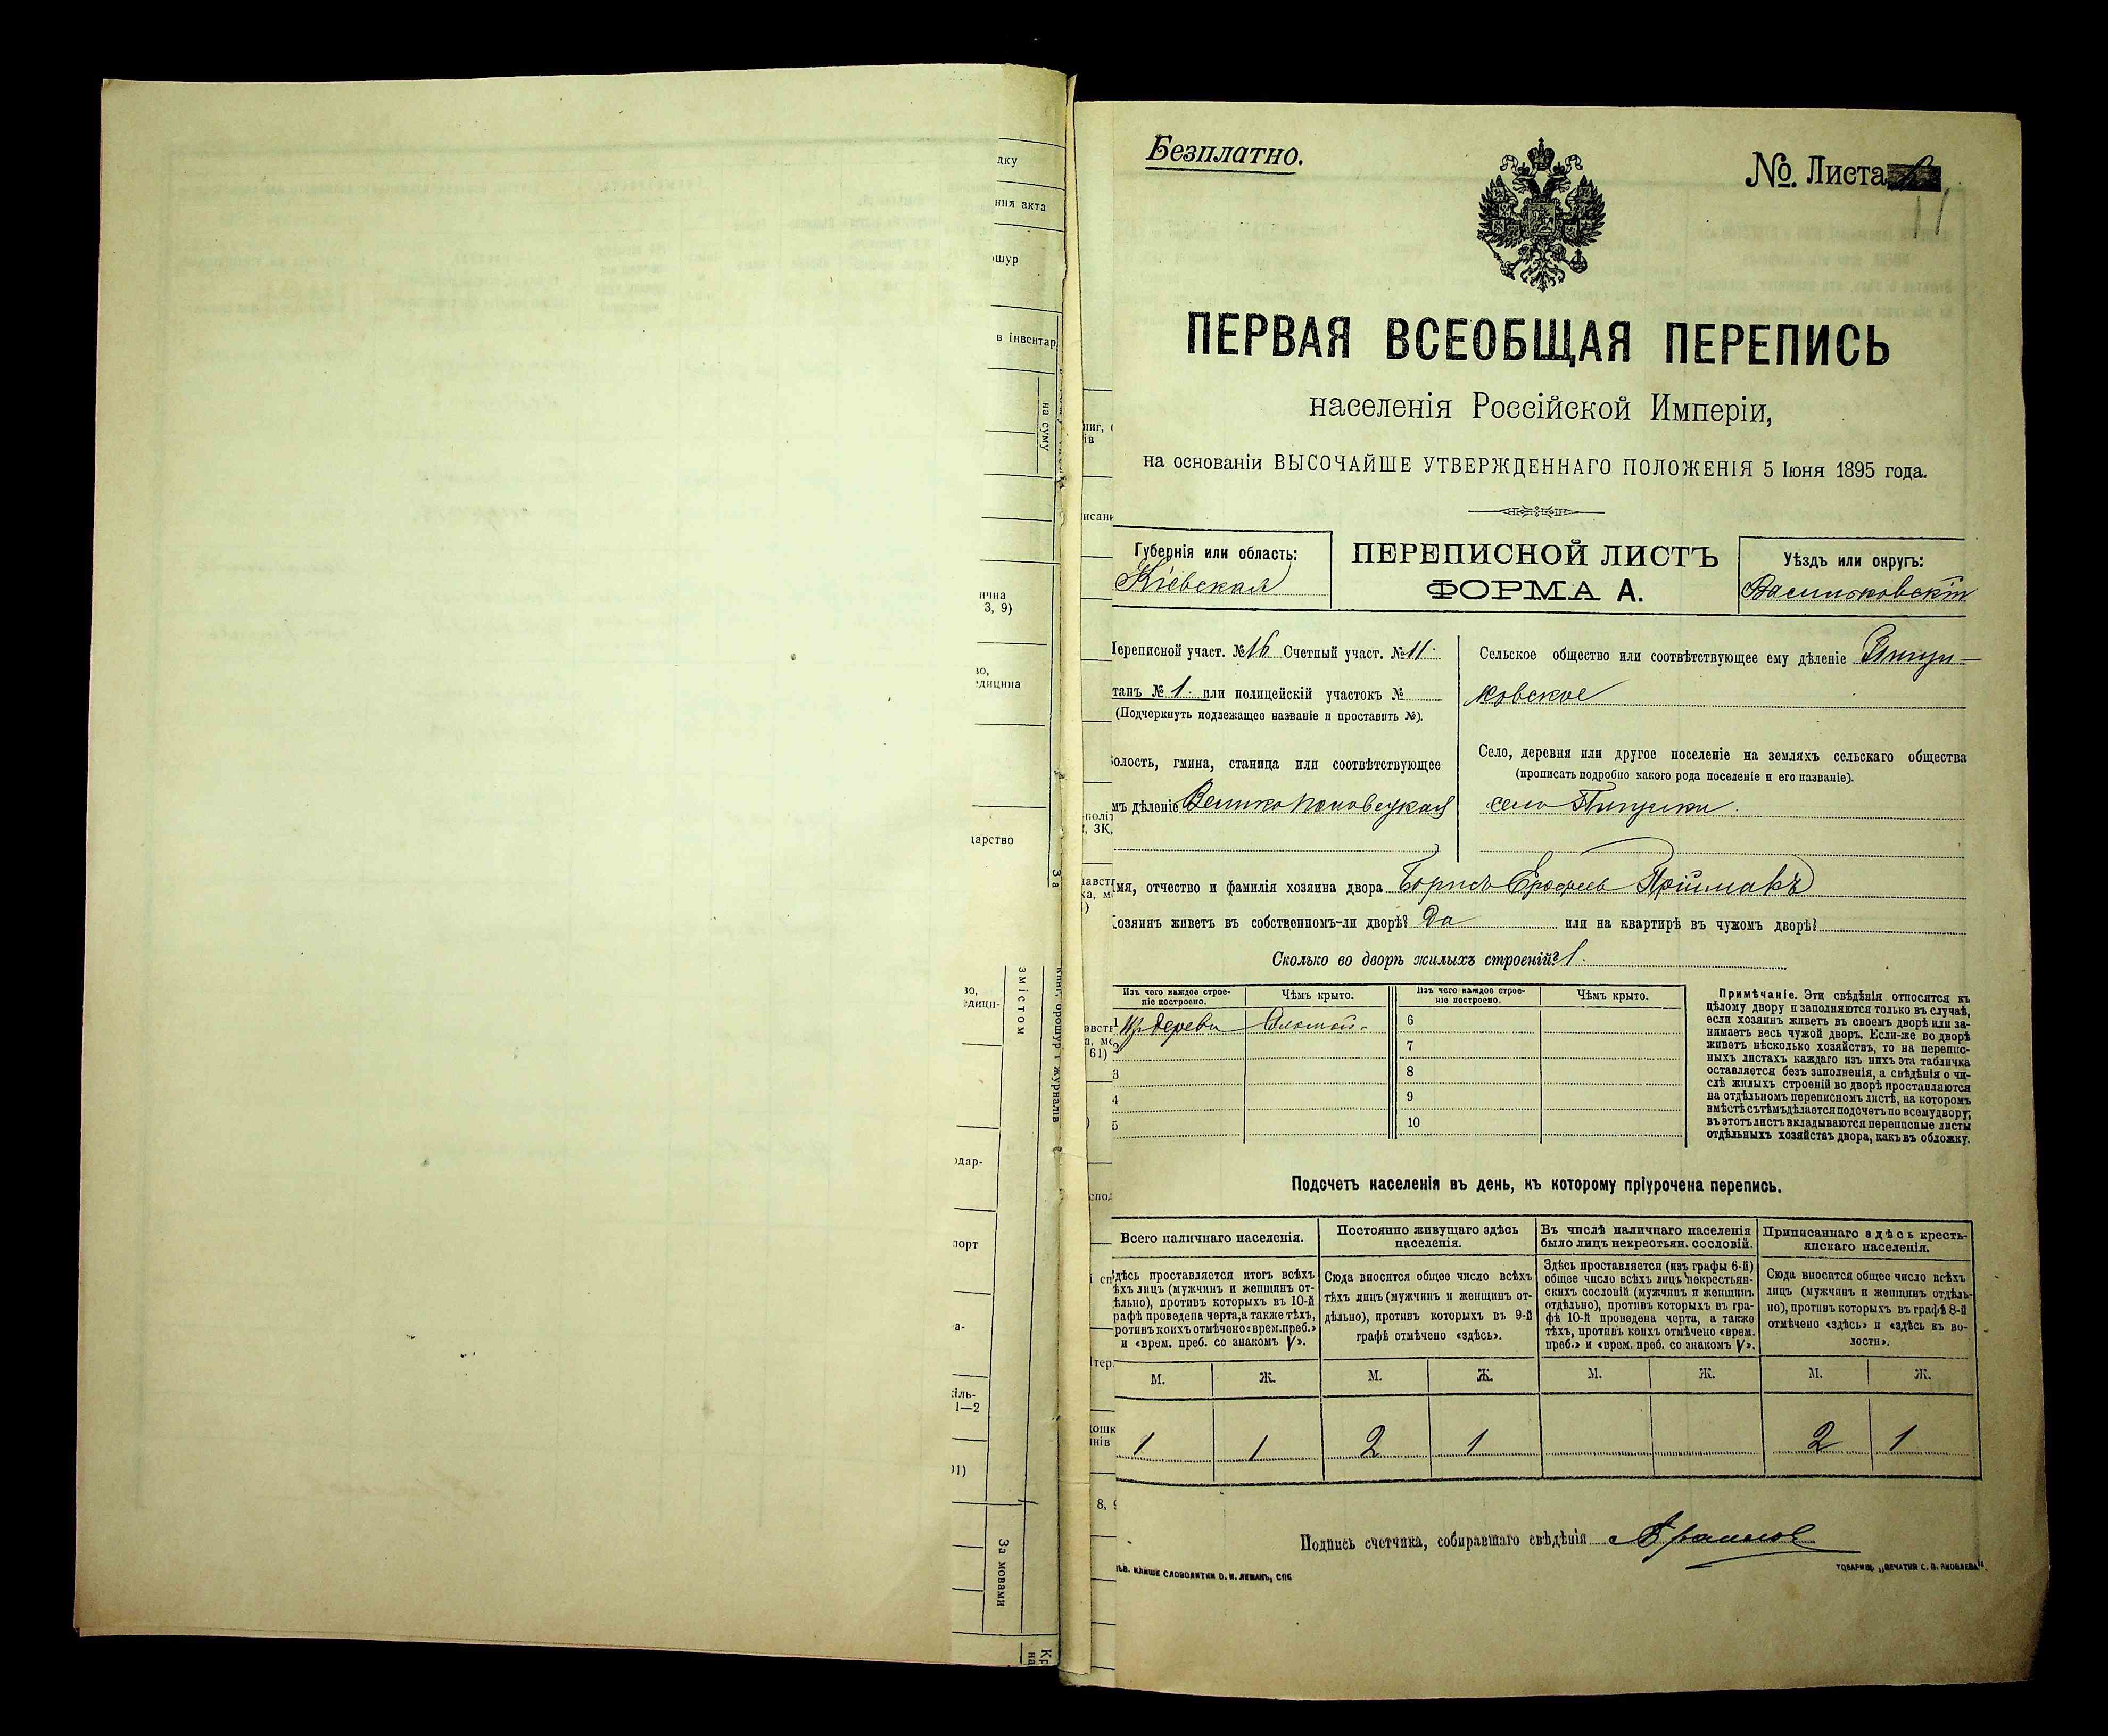 дку
ння акта
ошур
в інвентар
на суму
ична
3, 9)
едицина
дарство
За
змістом
книг, брошур і журналів
едици-
одар-
порт
а-
кіль-
1—2
91)
За мовами
Безплатно.
№. Листа
11
ПЕРВАЯ ВСЕОБЩАЯ ПЕРЕПИСЬ
населенія Россійской Имперіи,
на основаніи ВЫСОЧАЙШЕ УТВЕРЖДЕННАГО ПОЛОЖЕНІЯ 5 Іюня 1895 года.
Губернія или область:
Кіевская
ПЕРЕПИСНОЙ ЛИСТЪ
ФОРМА А.
Уѣздъ или округъ:
Васильковскій
Переписной участ. № 16 Счетный участ. № 11.
танъ № 1. или полицейскій участокъ №
(Подчеркнуть подлежащее названіе и проставить №).
олость, гмина, станица или соотвѣтствующее
мъ дѣленіе Великополовецкая
Сельское общество или соотвѣтствующее ему дѣленіе Пищи-
ковское
Село, деревня или другое поселеніе на земляхъ сельскаго общества
(прописать подробно какого рода поселеніе и его названіе).
село Пищики.
Имя, отчество и фамилія хозяина двора Борисъ Ерофеев Приймакъ
Хозяинъ живетъ въ собственномъ-ли дворѣ? Да или на квартирѣ въ чужомъ дворѣ?
Сколько во дворѣ жилыхъ строеній? 1.
Изъ чего каждое строе-
ніе построено.
Чѣмъ крыто.
Изъ чего каждое строе-
ніе построено.
Чѣмъ крыто.
1 Из дерева Соломой.
2
3
4
5
6
7
8
9
10
Примѣчаніе. Эти свѣдѣнія относятся къ
цѣлому двору и заполняются только въ случаѣ,
если хозяинъ живетъ въ своемъ дворѣ или за-
нимаетъ весь чужой дворъ. Если-же во дворѣ
живетъ нѣсколько хозяйствъ, то на перепис-
ныхъ листахъ каждаго изъ нихъ эта табличка
оставляется безъ заполненія, а свѣдѣнія о чи-
слѣ жилыхъ строеній во дворѣ проставляются
на отдѣльномъ переписномъ листѣ, на которомъ
вмѣстѣ съ тѣмъ дѣлается подсчетъ по всему двору;
въ этотъ листъ вкладываются переписные листы
отдѣльныхъ хозяйствъ двора, какъ въ обложку.
Подсчетъ населенія въ день, къ которому пріурочена перепись.
Всего наличнаго населенія.
Постоянно живущаго здѣсь
населенія.
Въ числѣ наличнаго населенія
было лицъ некрестьян. сословій.
Приписаннаго здѣсь кресть-
янскаго населенія.
Здѣсь проставляется итогъ всѣхъ
ѣхъ лицъ (мужчинъ и женщинъ от-
ѣльно), противъ которыхъ въ 10-й
рафѣ проведена черта, а также тѣхъ,
ротивъ коихъ отмѣчено «врем. преб.»
и «врем. преб. со знакомъ V».
Сюда вносится общее число всѣхъ
тѣхъ лицъ (мужчинъ и женщинъ от-
дѣльно), противъ которыхъ въ 9-й
графѣ отмѣчено «здѣсь».
Здѣсь проставляется (изъ графы 6-й)
общее число всѣхъ лицъ некрестьян-
скихъ сословій (мужчинъ и женщинъ
отдѣльно), противъ которыхъ въ гра-
фѣ 10-й проведена черта, а также
тѣхъ, противъ коихъ отмѣчено «врем.
преб.» и «врем. преб. со знакомъ V».
Сюда вносится общее число всѣхъ
лицъ (мужчинъ и женщинъ отдѣль-
но), противъ которыхъ въ графѣ 8-й
отмѣчено «здѣсь» и «здѣсь къ во-
лости».
М. Ж. М. Ж. М. Ж. М. Ж.
1 1 2 1 2 1
Подпись счетчика, собиравшаго свѣдѣнія
КЛИШЕ СЛОВОЛИТНИ О. И. ЛЕМАНЪ, СПБ
ТОВАРИЩ. „ПЕЧАТНЯ С. П. ЯКОВЛЕВА“.